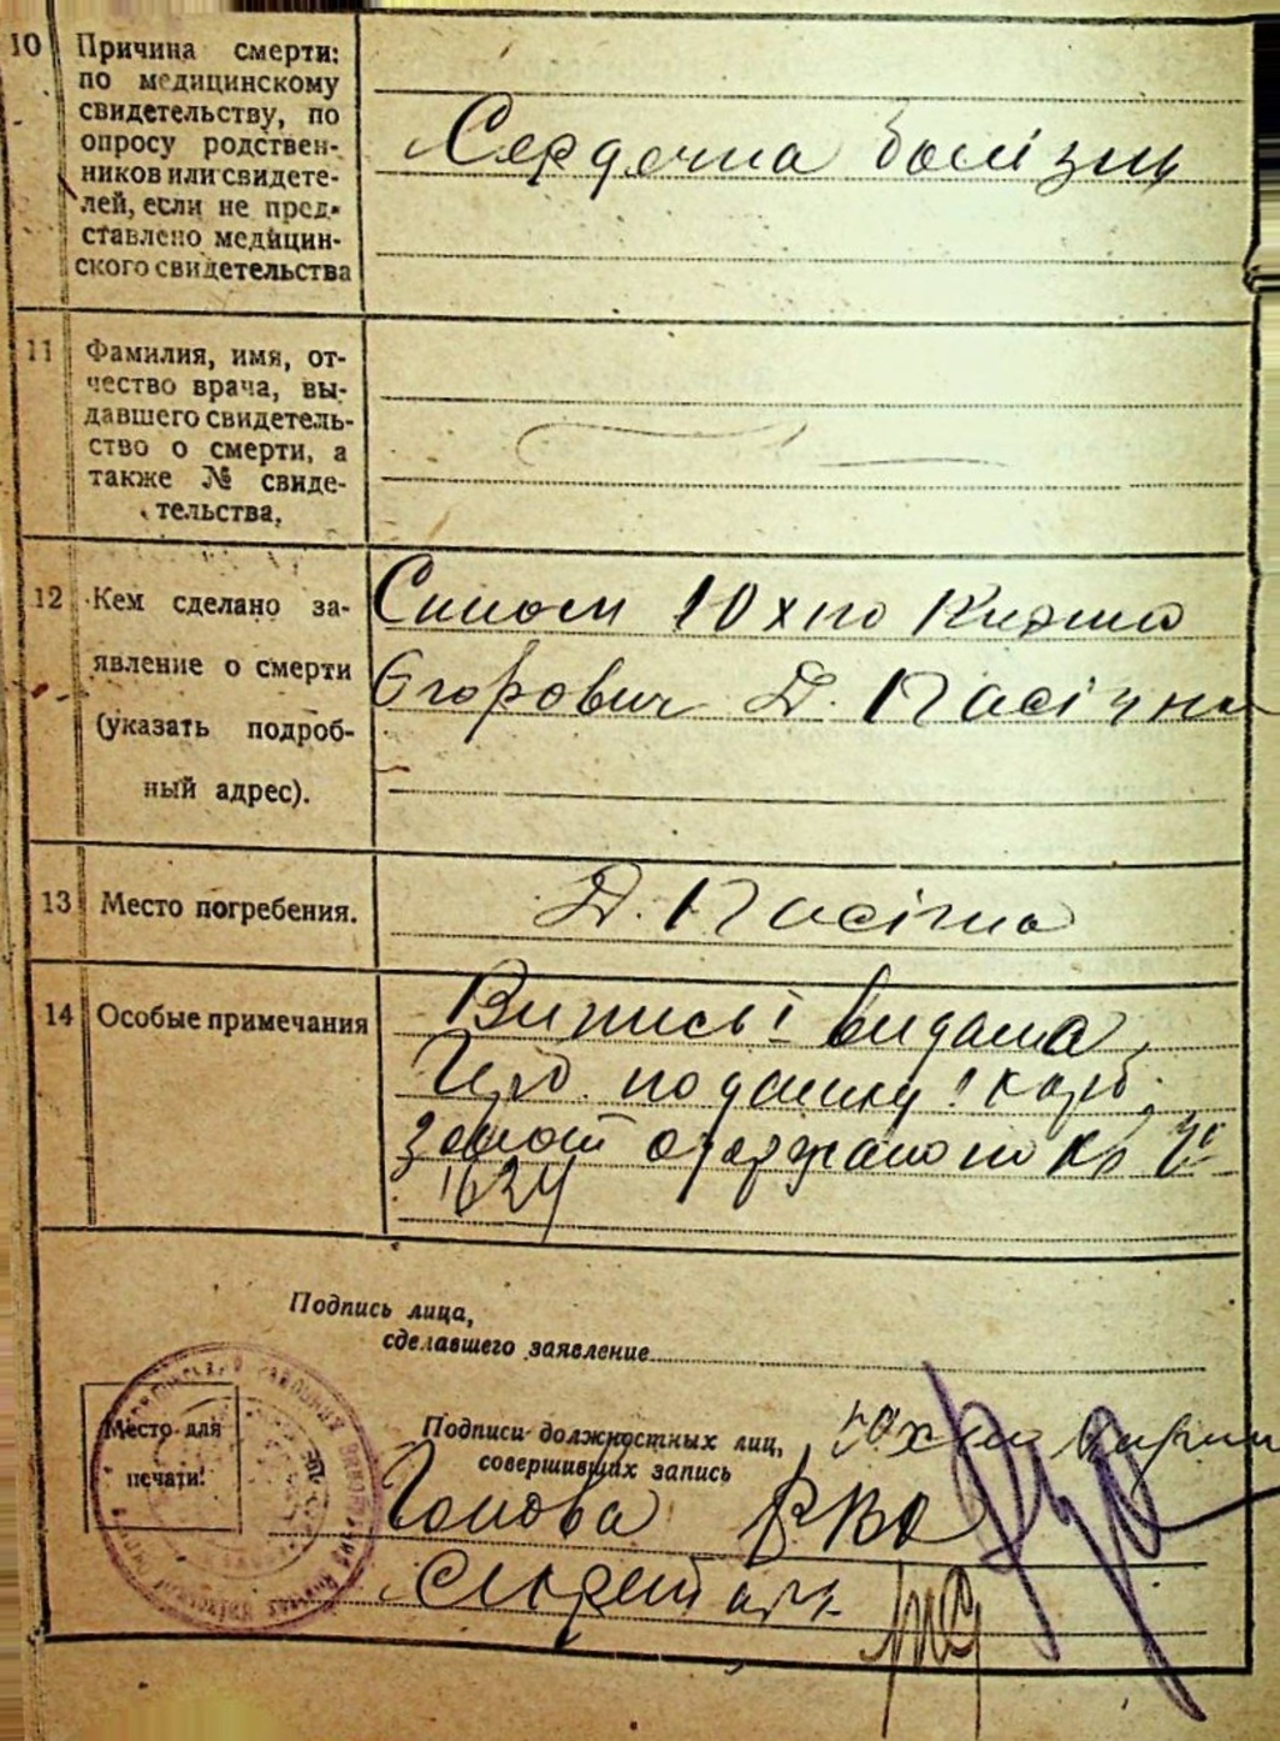 10 Причина смерти:
по медицинскому
свидетельству, по
опросу родствен-
ников или свидете-
лей, если не пред-
ставлено медицин-
ского свидетельства
Сердечна болізнь
11 Фамилия, имя, от-
чество врача, вы-
давшего свидетель-
ство о смерти, а
также № свиде-
тельства.
12 Кем сделано за-
явление о смерти
(указать подроб-
ный адрес).
Сином Юхно
Єгорович Д. Пасічна
13 Место погребения.
Д. Пасічна
14 Особые примечания
Випись видана
1624
Подпись лица,
сделавшего заявление
Место для
печати:
Подписи должностных лиц,
совершивших запись
Голова
Секретарь